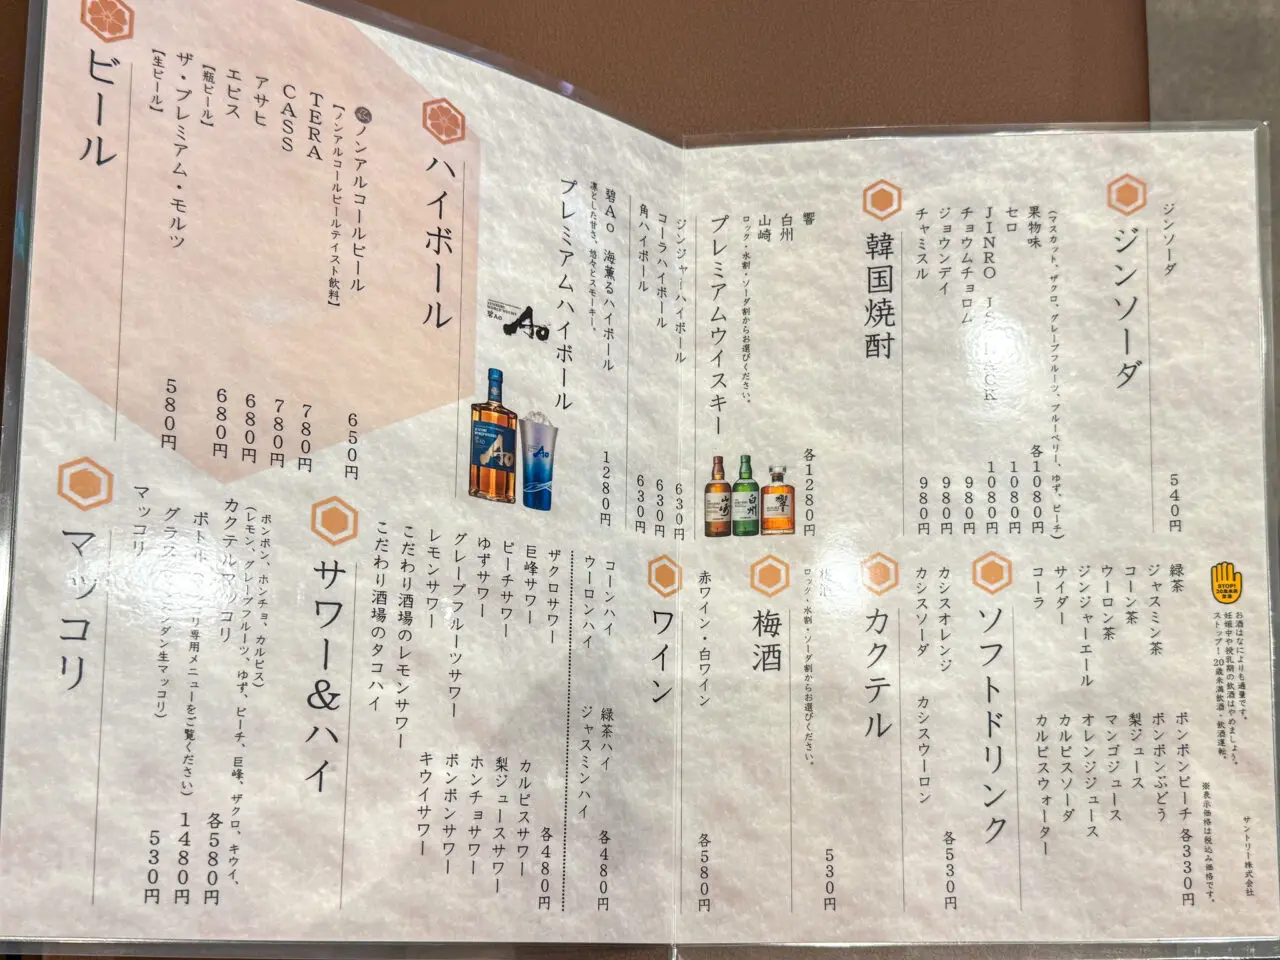 ビール
【生ビール】
ザ・プレミアム・モルツ 580円
【瓶ビール】
エビス 680円
アサヒ 680円
CASS 780円
TERA 780円
【ノンアルコールビールテイスト飲料】
ノンアルコールビール 650円
ハイボール
プレミアムハイボール
碧Ao
Ao
凛とした甘さ、悠々とスモーキー。
碧Ao 海薫るハイボール 1280円
角ハイボール 630円
コーラハイボール 630円
ジンジャーハイボール 630円
プレミアムウイスキー
ロック・水割・ソーダ割からお選びください。
山崎
白州
響 各1280円
韓国焼酎
チャミスル 980円
ジョウンデイ 980円
チョウムチョロム 980円
JINRO 1080円
セロ 1080円
果物味 各1080円
(マスカット、ザクロ、グレープフルーツ、ブルーベリー、ゆず、ピーチ)
ジンソーダ
ジンソーダ 540円
マッコリ
マッコリ 530円
グラス
ダン生マッコリ) 1480円
ボトル
専用メニューをご覧ください)
カクテルマッコリ 各580円
(レモン、グレープフルーツ、ゆず、ピーチ、巨峰、ザクロ、キウイ、
ボンボン、ホンチョ、カルピス)
サワー&ハイ
こだわり酒場のタコハイ
こだわり酒場のレモンサワー
レモンサワー キウイサワー
グレープフルーツサワー ボンボンサワー
ゆずサワー ホンチョサワー
ピーチサワー 梨ジュースサワー
巨峰サワー カルピスサワー
ザクロサワー 各480円
ウーロンハイ ジャスミンハイ
コーンハイ 緑茶ハイ 各480円
ワイン
赤ワイン・白ワイン 各580円
梅酒
ロック・水割・ソーダ割からお選びください。
530円
カクテル
カシスソーダ カシスウーロン
カシスオレンジ 各530円
ソフトドリンク
コーラ カルピスウォーター
サイダー カルピスソーダ
ジンジャーエール オレンジジュース
ウーロン茶 マンゴジュース
コーン茶 梨ジュース
ジャスミン茶 ボンボンぶどう
緑茶 ボンボンピーチ 各330円
STOP!
ストップ!20歳未満飲酒・飲酒運転。
妊娠中や授乳期の飲酒はやめましょう。
お酒はなによりも適量です。
※表示価格は税込み価格です。
サントリー株式会社
山崎
白州
響